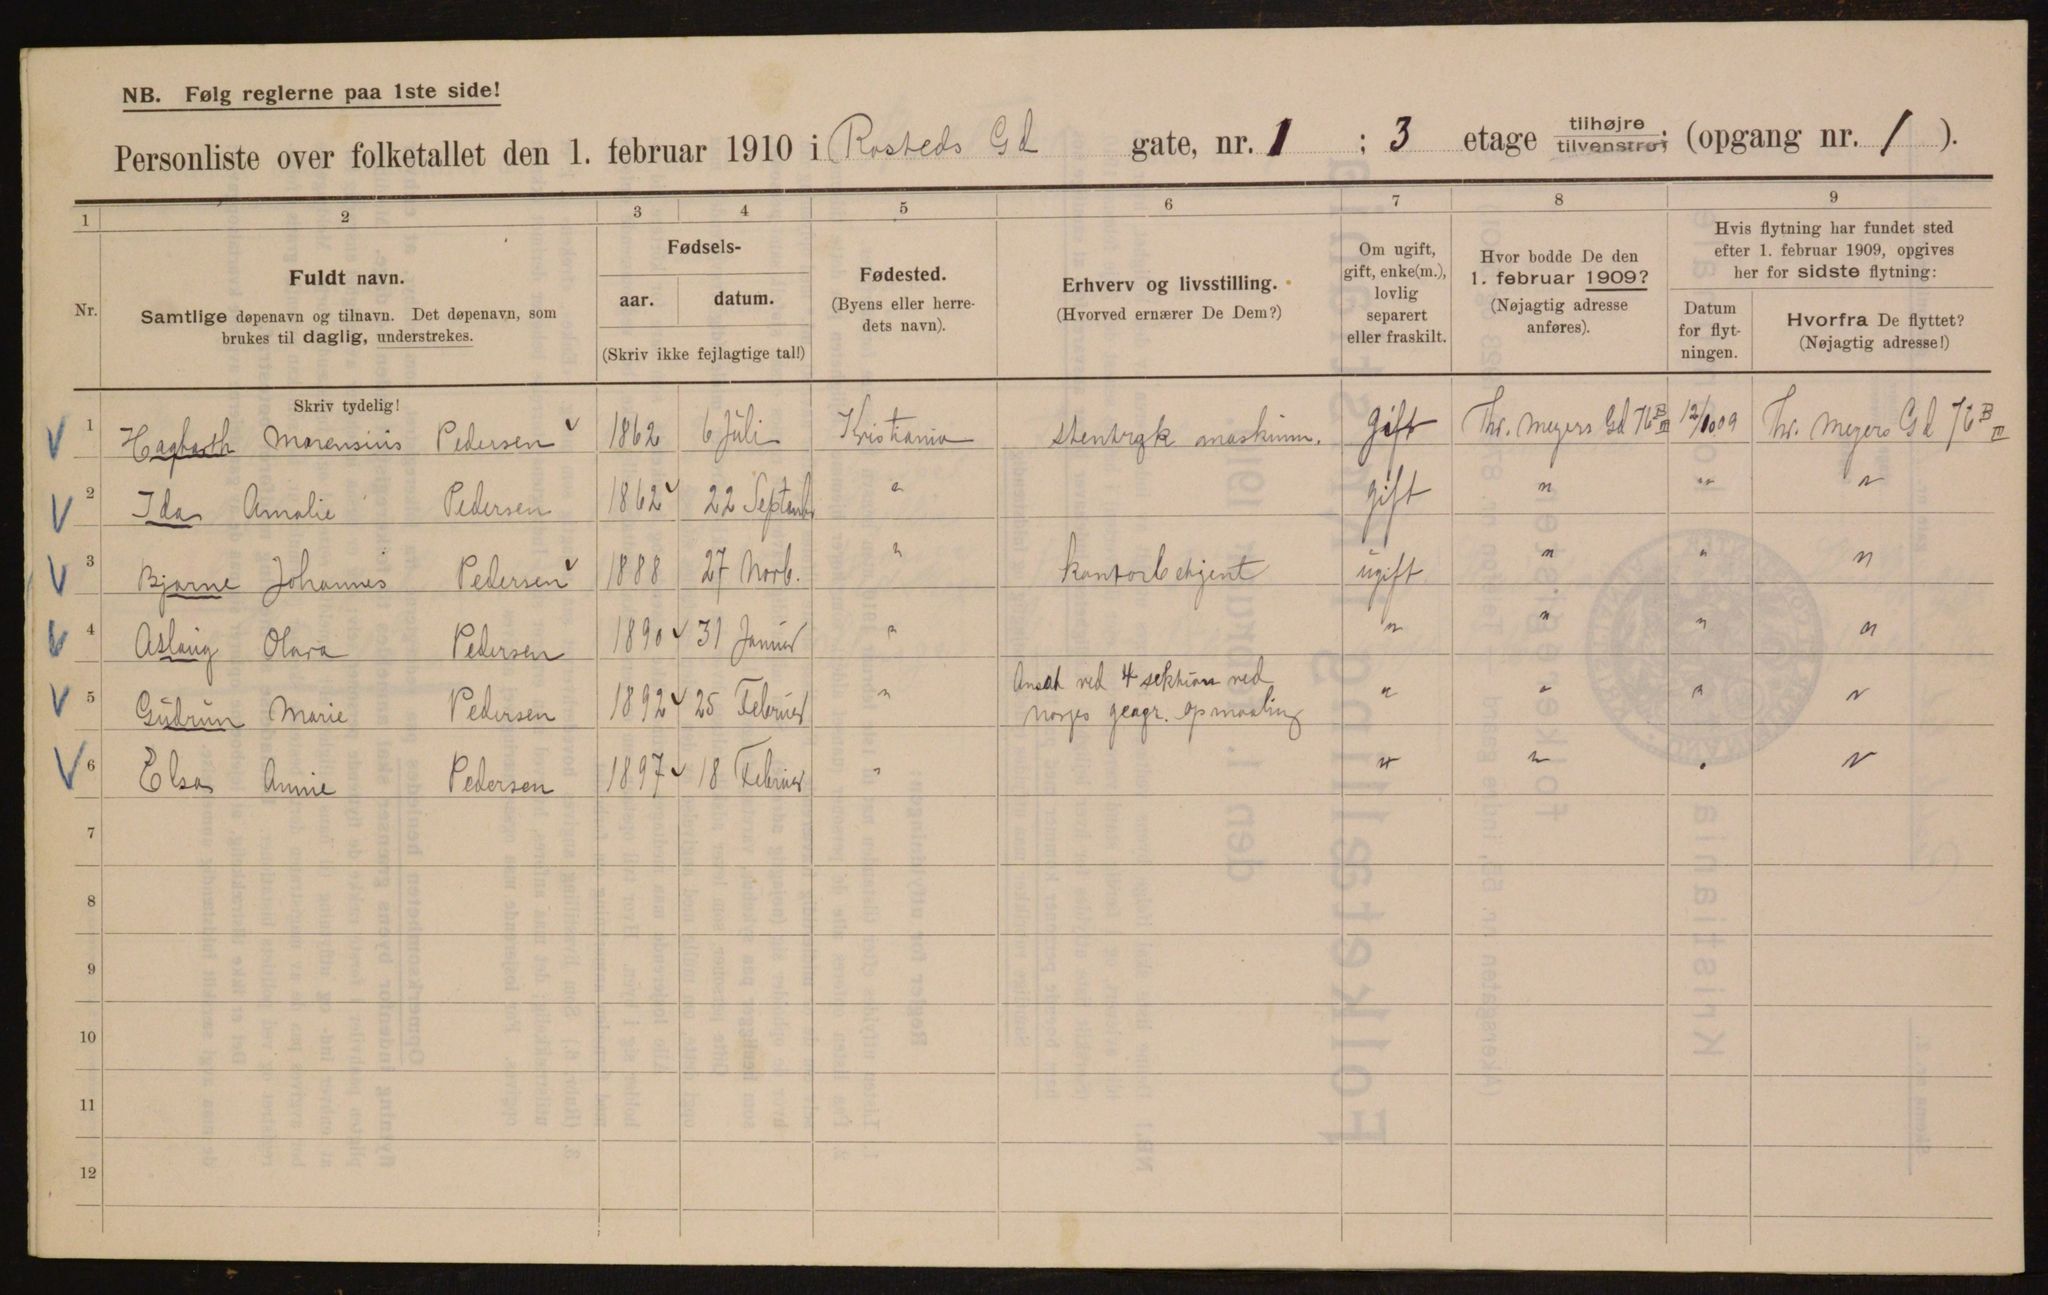 NB. Følg reglerne paa 1ste side!
Personliste over folketallet den 1. februar 1910 i Rosteds Gd gate, nr. 1 ; 3 etage tilhøjre tilvenstre; (opgang nr. 1 ).
1 2 3 4 5 6 7 8 9
Nr.
Fuldt navn.
Samtlige døpenavn og tilnavn. Det døpenavn, som
brukes til daglig, understrekes.
Fødsels-
aar. datum.
(Skriv ikke fejlagtige tal!)
Fødested.
(Byens eller herre-
dets navn).
Erhverv og livsstilling.
(Hvorved ernærer De Dem?)
Om ugift,
gift, enke(m.),
lovlig
separert
eller fraskilt.
Hvor bodde De den
1. februar 1909?
(Nøjagtig adresse
anføres).
Hvis flytning har fundet sted
efter 1. februar 1909, opgives
her for sidste flytning:
Datum
for flyt-
ningen.
Hvorfra De flyttet?
(Nøjagtig adresse!)
Skriv tydelig!
1 Hagbarth Morensius Pedersen 1862 6 Juli Kristiania stentryk maskinm. gift Thv. Meyers Gd 76 B III 12/10 09 Thv. Meyers Gd 76 B III
2 Ida Amalie Pedersen 1862 22 Septemb " gift " " "
3 Bjarne Johannes Pedersen 1888 27 Novb. " kontorbetjent ugift " " "
4 Aslaug Olava Pedersen 1890 31 Januar " " " " "
5 Gudrun Marie Pedersen 1892 25 Februar " Ansat ved 4 sektion ved " " " "
norges geogr. opmaaling
6 Elsa Annie Pedersen 1897 18 Februar " " " " "
7
8
9
10
11
12